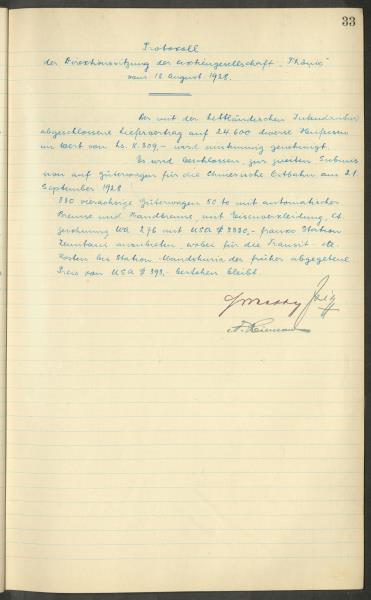 33
Protokoll
der Direktionssitzung der Aktiengesellschaft "Phönix"
vom 18 August 1928.
Der mit der lettländischen Intendantur
abgeschlossene Liefervertrag auf 24.600 diverse
im Wert von Ls. 8.309,- wird einstimmig genehmigt.
Es wird beschlossen, zur zweiten Submis
sion auf Güterwagen für die Chinesische Ostbahn am 21.
September 1928
330 vierachsige Güterwagen 50 to mit automatischer
Bremse und Handbremse, mit Eisenverkleidung, lt.
Zeichnung 276 mit USA $ 3330,- franko Station
anzubieten, wobei für die Transit- etc.
Kosten bis Station Mandschuria der früher abgegebene
Preis von USA $ 393,- bestehen bleibt.